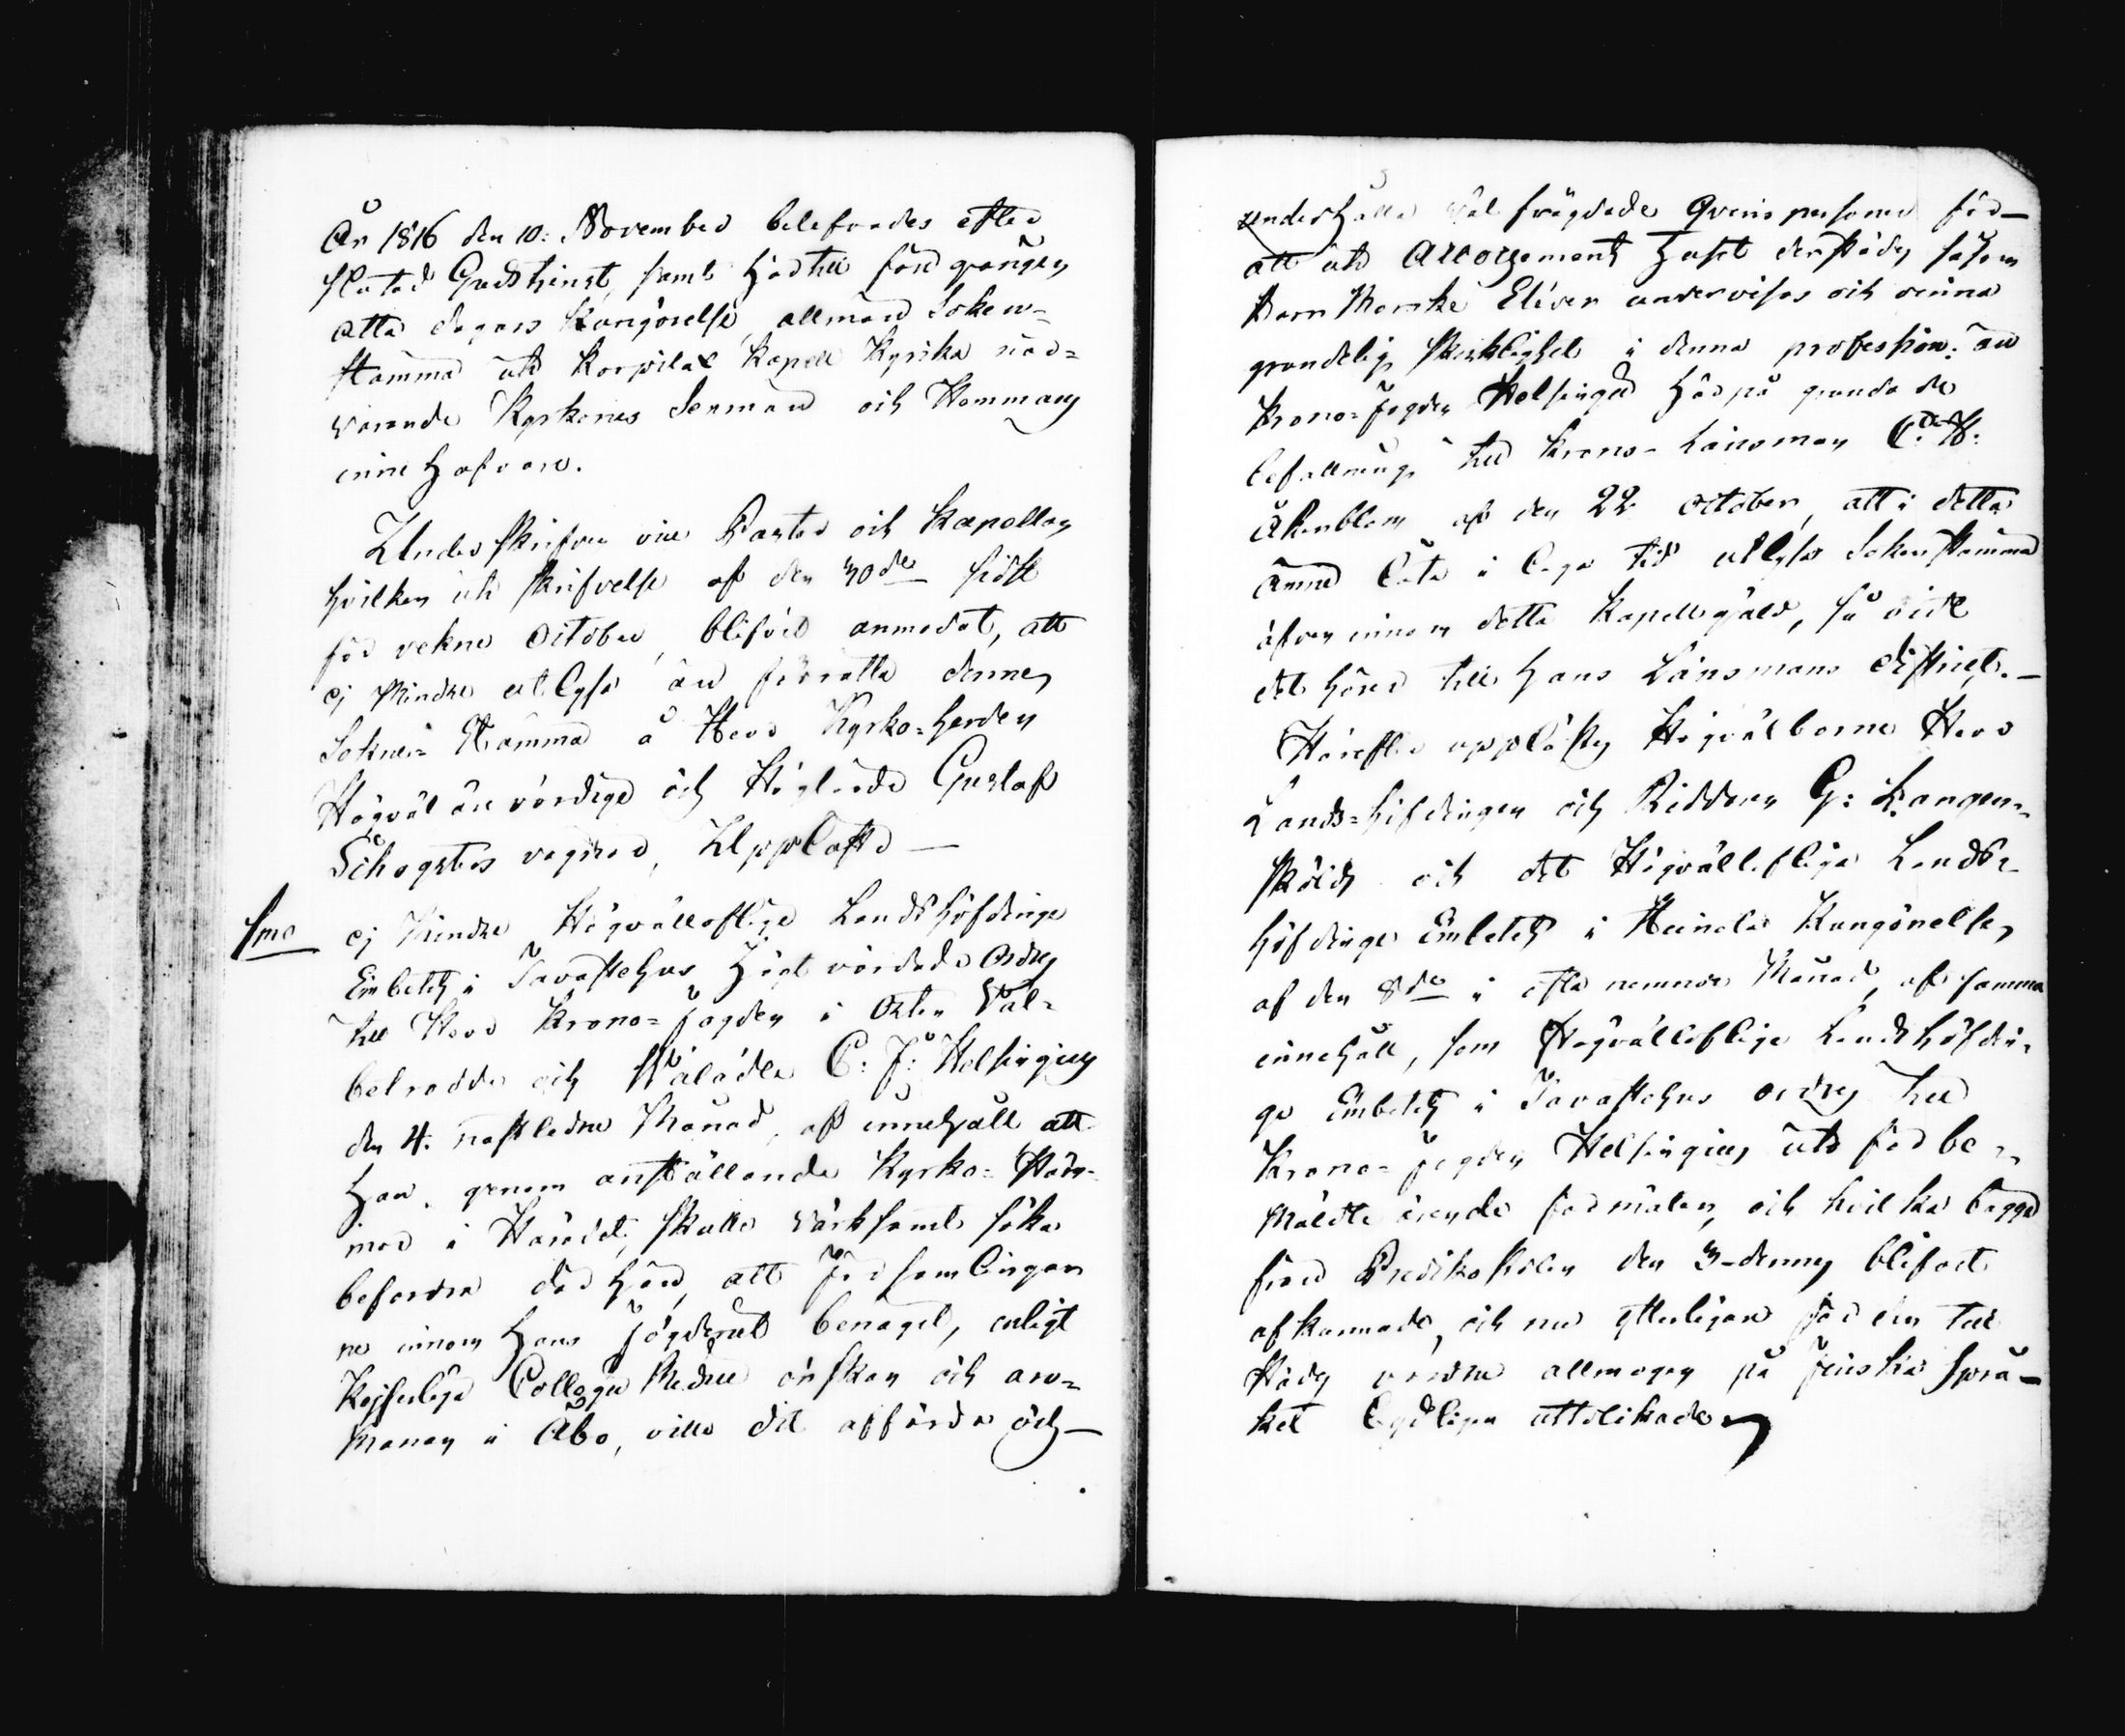 År 1816 den 10: November belefvades efter
slutad Gudstienst, samt härtill föregången
åtta dagars Kungörelse, allmän Soken-
stämma uti Korpilax Kapell Kyrka när-
varande Kyrkones Sexmän och Hemmans
innehafvare.
Underskrifven vice Pastor och Kapellan
hvilken uti skrifvelse af den 30de sidst
för vekne October, blifvit anmodat, att
ej mindre utlysa än förrätta denne
Sokne-Stämma å Herr Kyrko-herden
Högvälärevördige och Höglärde Gustaf
vägnar, Uppläste —
1mo ej mindre Högvälloflige Landshöfdinge
Embetets i Tavastehus Högt vördade Ordres
till Herr Krono-fogden i Öfre
Välbetrodde och Wälädle C: J: Helsingius
den 4. nästledne Månad, af innehåll att
Han, genom anställande Kyrko-Stäm-
mor i Häradet, skulle värksamt söka
befordra där hän, att Församlingar
ne innom Hans Fögderie benägit, enligt
Kejserliga Collegii Medici önskan och
i Åbo, ville dit afförda och —
underhålla väl frägdade Qvinspersoner för
att uti Accouchements Huset derstädes såsom
Barn Morske Eléver undervisas och vinna
grundelig skicklighet i denna profession: än
Krono-Fogden Helsingii här på grundade
befallning till Krono-Länsman C. H:
Åkerblom af den 22 October, att i detta
ämne låta i laga tid utlysa Sokenstämma
äfven innom detta Kapellgäld, så vidt
det hörer till Hans Länsmans district. —
Härefter upplästes Högvälborne Herr
Lands-höfdingen och Riddaren G: Langen-
skölds och det Högvällofliga Lands-
höfdinge Embetets i Heinola Kungörelse,
af den 8de i ofta nemnde Månad, af samma
innehåll, som Högvälloflige Landshöfdin-
ge Embetets i Tavastehus ordres till
Krono-Fogden Helsingius uti förbe-
mälde ärende förmälen, och hvilka bägge
från Predikostolen den 3-dennes blifvit
afkunnade, och nu ytterligare för den till
städes varande allmogen på Finska Språ-
ket tydligen uttolkades